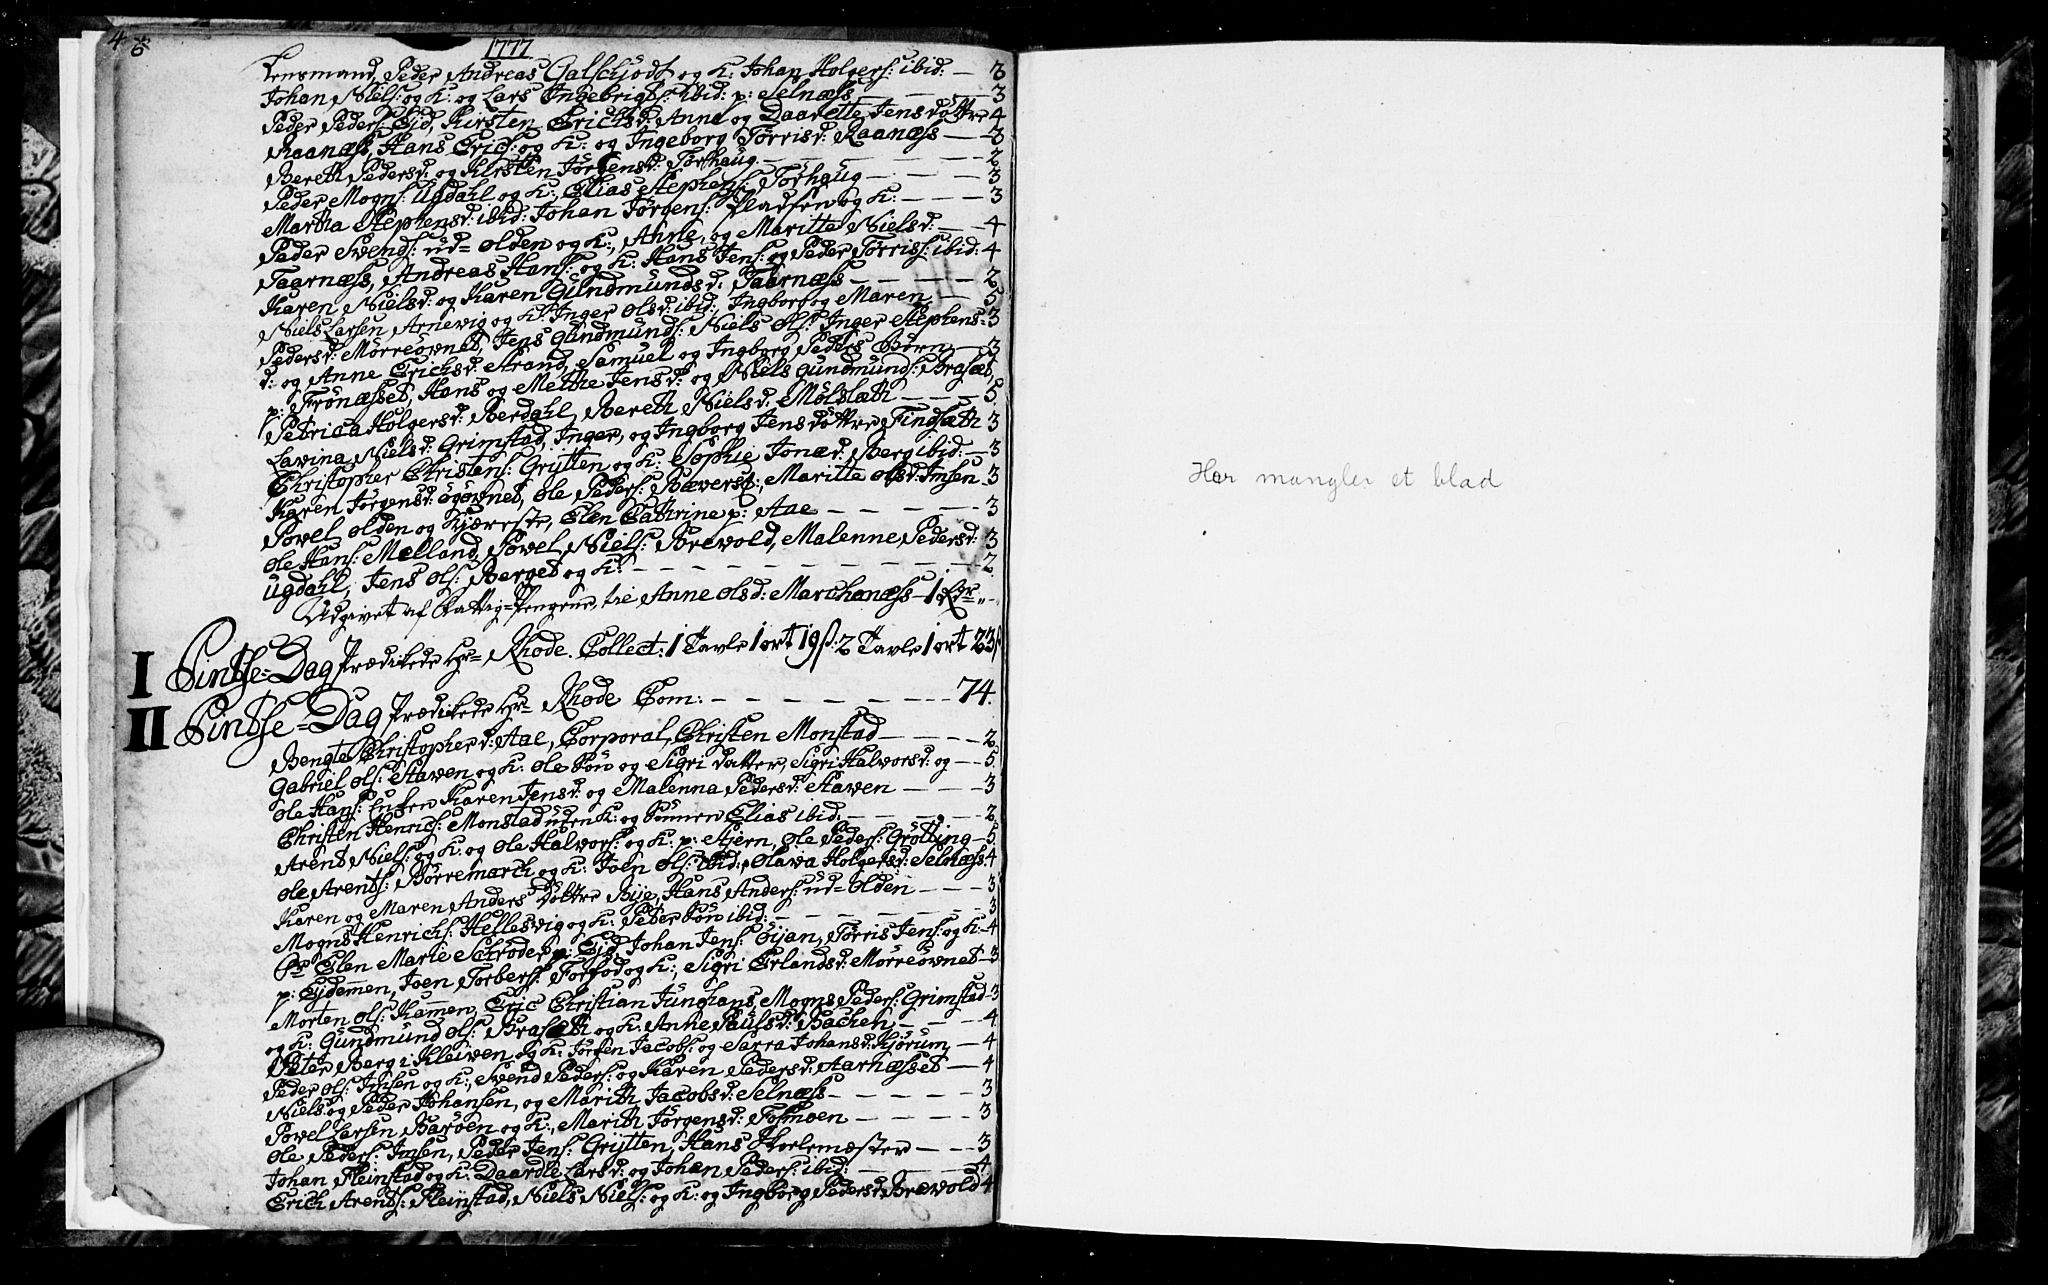 4
1777
Lensmand, Peder Andreas Galschjødt og K: Johan Holgers: ibid: — 3
Johan Niels: og K: og Lars Ingebrigts: ibid: p: Selnæss — 3
Peder Peders: Eid, Kirsten Erichsd: Anne og Daarette Jens døttre 4
Raanæss, Hans Erics: og K: og Ingeborg Tørrisd: Raanæss — 3
Bereth Pedersd: og Kirsten Jørgensd: Tørhaug — 2
Peder Mogns: Ugdahl og K:, Elias Stephens: Tørhaug — 3
Martha Stephensd: ibid: Johan Jørgens: Pladsen og K: — 3
Peder Svends: ud-Olden og K:, Anne, og Maritte Nielsd: — 4
Taarnæss, Andreas Hans: og K: Hans Jens: og Peder Tørriss: ibid: 4
Karen Nielsd: og Karen Gundmundsd: Taarnæss — 2
Niels Larsen Arnevig og K: Inger Olsd: ibid: Ingborg og Maren — 5
Pedersd: Mørreøvned, Jens Gundmunds: Niels Ols: Inger Stephens- 3
d: og Anne Erichsd: Strand, Samuel og Ingborg Peders Børn — 3
p: Frønæsset, Hans og Methe Jensd: og Niels Gundmunds: Brasæt,
Petrica Holgersd: Berdahl, Bereth Nielsd: Mølslæth — 5
Lavina Nielsd: Grimstad, Inger, og Ingborg Jens døttre Findsæth 3
Christopher Christens: Grytten og K: Sophie Jonæd: Berg ibid: — 3
Karen Jørgensd: Øgøvned, Ole Peders: Bæverf:, Maritte Olsd: Imsen 3
Povel Olden og Kjæreste, Elen Cathrine p: Aae — 3
Ole Hans: Melland, Povel Niels: Brevold, Malenne Pedersd: 3
Ugdahl, Jens Ols: Berget og K: — 2
Udgivet af Fattig-Pengene, til Anne Olsd: Marchanæss — 1 Rdr
I Pintse-Dag Prædikede Hr= Rhode. Collect: 1 Tavle 1 ort 19 ß: 2 Tavle 1 ort 23 ß
II Pintse-Dag Prædikede Hr= Rhode Com: — 74.
Bengte Christopherd: Aae, Corporal, Christen Monstad — 2
Gabriel Ols: Staven og K: Ole Søn og Sigri datter, Sigri Halvorsd: og — 5
Ole Hans: Enken Karen Jensd: og Malenna Pedersd: Staven — 3
Christen Henrics: Monstad uden K: og Sønnen Elias ibid: — 2
Arent Niels: og K: og Ole Halvors: og K: p: Stjern, Ole Peders: Grøtting — 5
Ole Arents: Børremarch og K: Joen Ols: ibid:, Olava Holgersd: Selnæss 4
Karen og Maren Anders døttre Bye, Hans Anders: ud-Olden — 3
Mogns Henrichs: Hellesvig og K: Peder Søn ibid: — 3
Elen Marie Schrøder p: Eid, Johan Jens: Øyan, Tørris Jens: og K: — 4
p: Ejdemmen, Joen Torbers: Forfod og K:, Sigri Erlandsd: Mørreøvned — 3
Morten Ols: Kammen, Eric Christian Junghans, Mogns Peders: Grimstad — 3
og K: Gundmund Ols: Brasæth og K: Anne Paulsd: Bachen — 4
Peter Berg i Kleiven og K: Jørgen Jacobs: og Sarra Johansd: Kjørum — 4
Peder Ols: Imsen og K:, Svend Peders: og Karen Pedersd: Aarnæsset — 4
Niels og Peder Johansen, og Marith Jacobsd: Selnæss — 3
Povel Larsen Barøen og K:, Marith Jørgensd: Fosmoen — 3
Ole Peders: Imsen, Peder Jens: Grytten, Hans Skolemæster — 3
Johan Fleinstad og K: Daardte Larsd: og Johan Peders: ibid: — 4
Erich Arents: Fleinstad, Niels Niels: og K: og Ingborg Pedersd: Brevold 4
Her mangler et blad